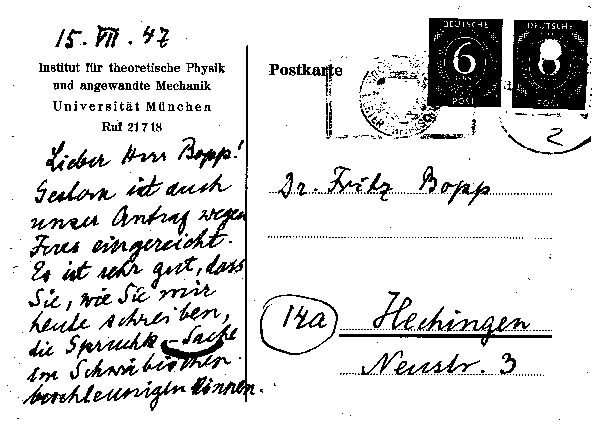 15. VII. 47
Institut für theoretische Physik
und angewandte Mechanik
Universität München
Ruf 21718
Lieber Herr Bopp!
Gestern ist auch
unser Antrag wegen
Ihres eingereicht.
Es ist sehr gut, dass
Sie, wie Sie mir
heute schreiben,
die Spruchk.-Sache
im Schwäbischen
beschleunigen können.
Postkarte
DEUTSCHE
6
POST
DEUTSCHE
POST
2
Dr. Fritz Bopp
14a
Hechingen
Neustr. 3